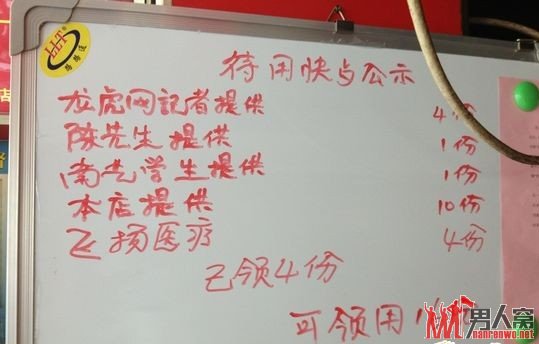 LLT
待用快歺公示
龙虎网記者提供 4份
陈先生提供 1份
南尢学生提供 1份
本店提供 10份
飞扬医疗 4份
已领4份
可领用
男人窝
nanrenwo.net